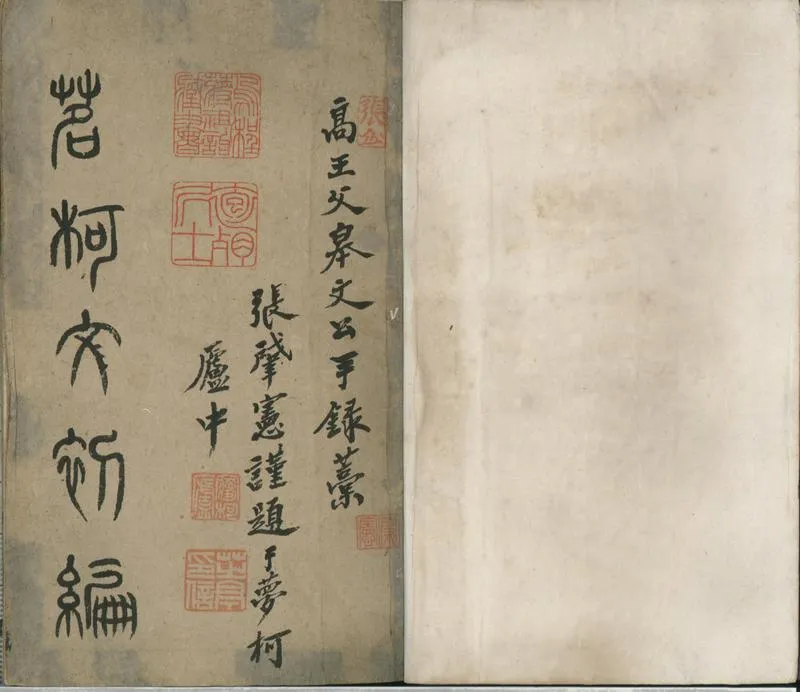 高王父皋文公手録藁
張肇憲謹題于夢柯
廬中
茗柯文初編